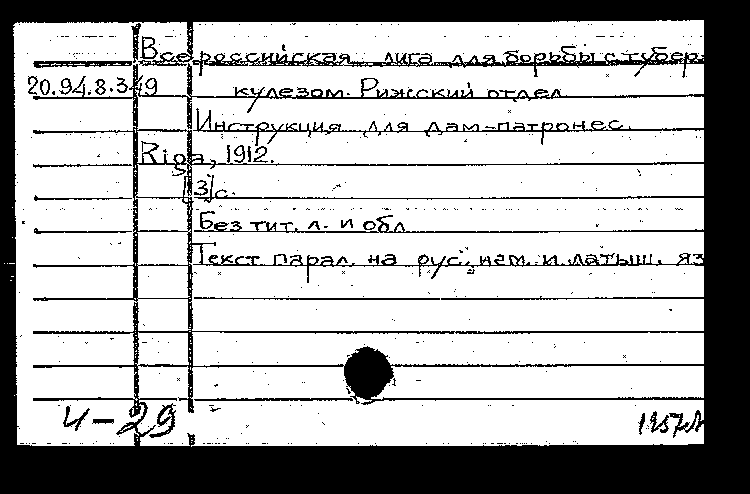 Всероссийская лига для борьбы с тубер-
20.94.8.349 кулезом. Рижский отдел
Инструкция для дам-патронес.
Riga, 1912.
[3]с.
Без тит. л. и обл
Текст парал. на рус., нем. и латыш. яз
и-29